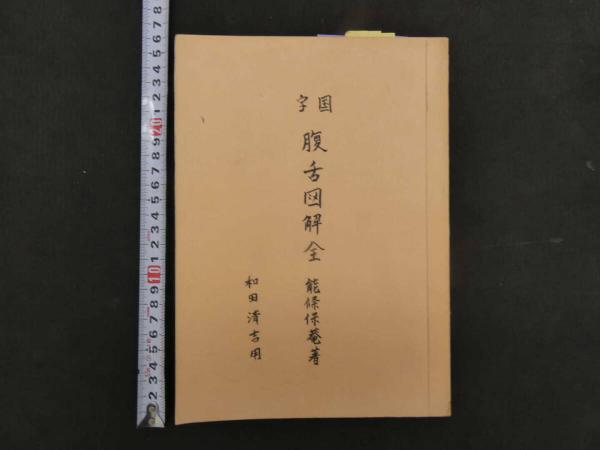 国字
腹舌図解全
能條保菴著
和田清吉用
2 3 4 5 6 7 8 9 10 1 2 3 4 5 6 7 8 9 20 1 2 3 4 5 6 7 8